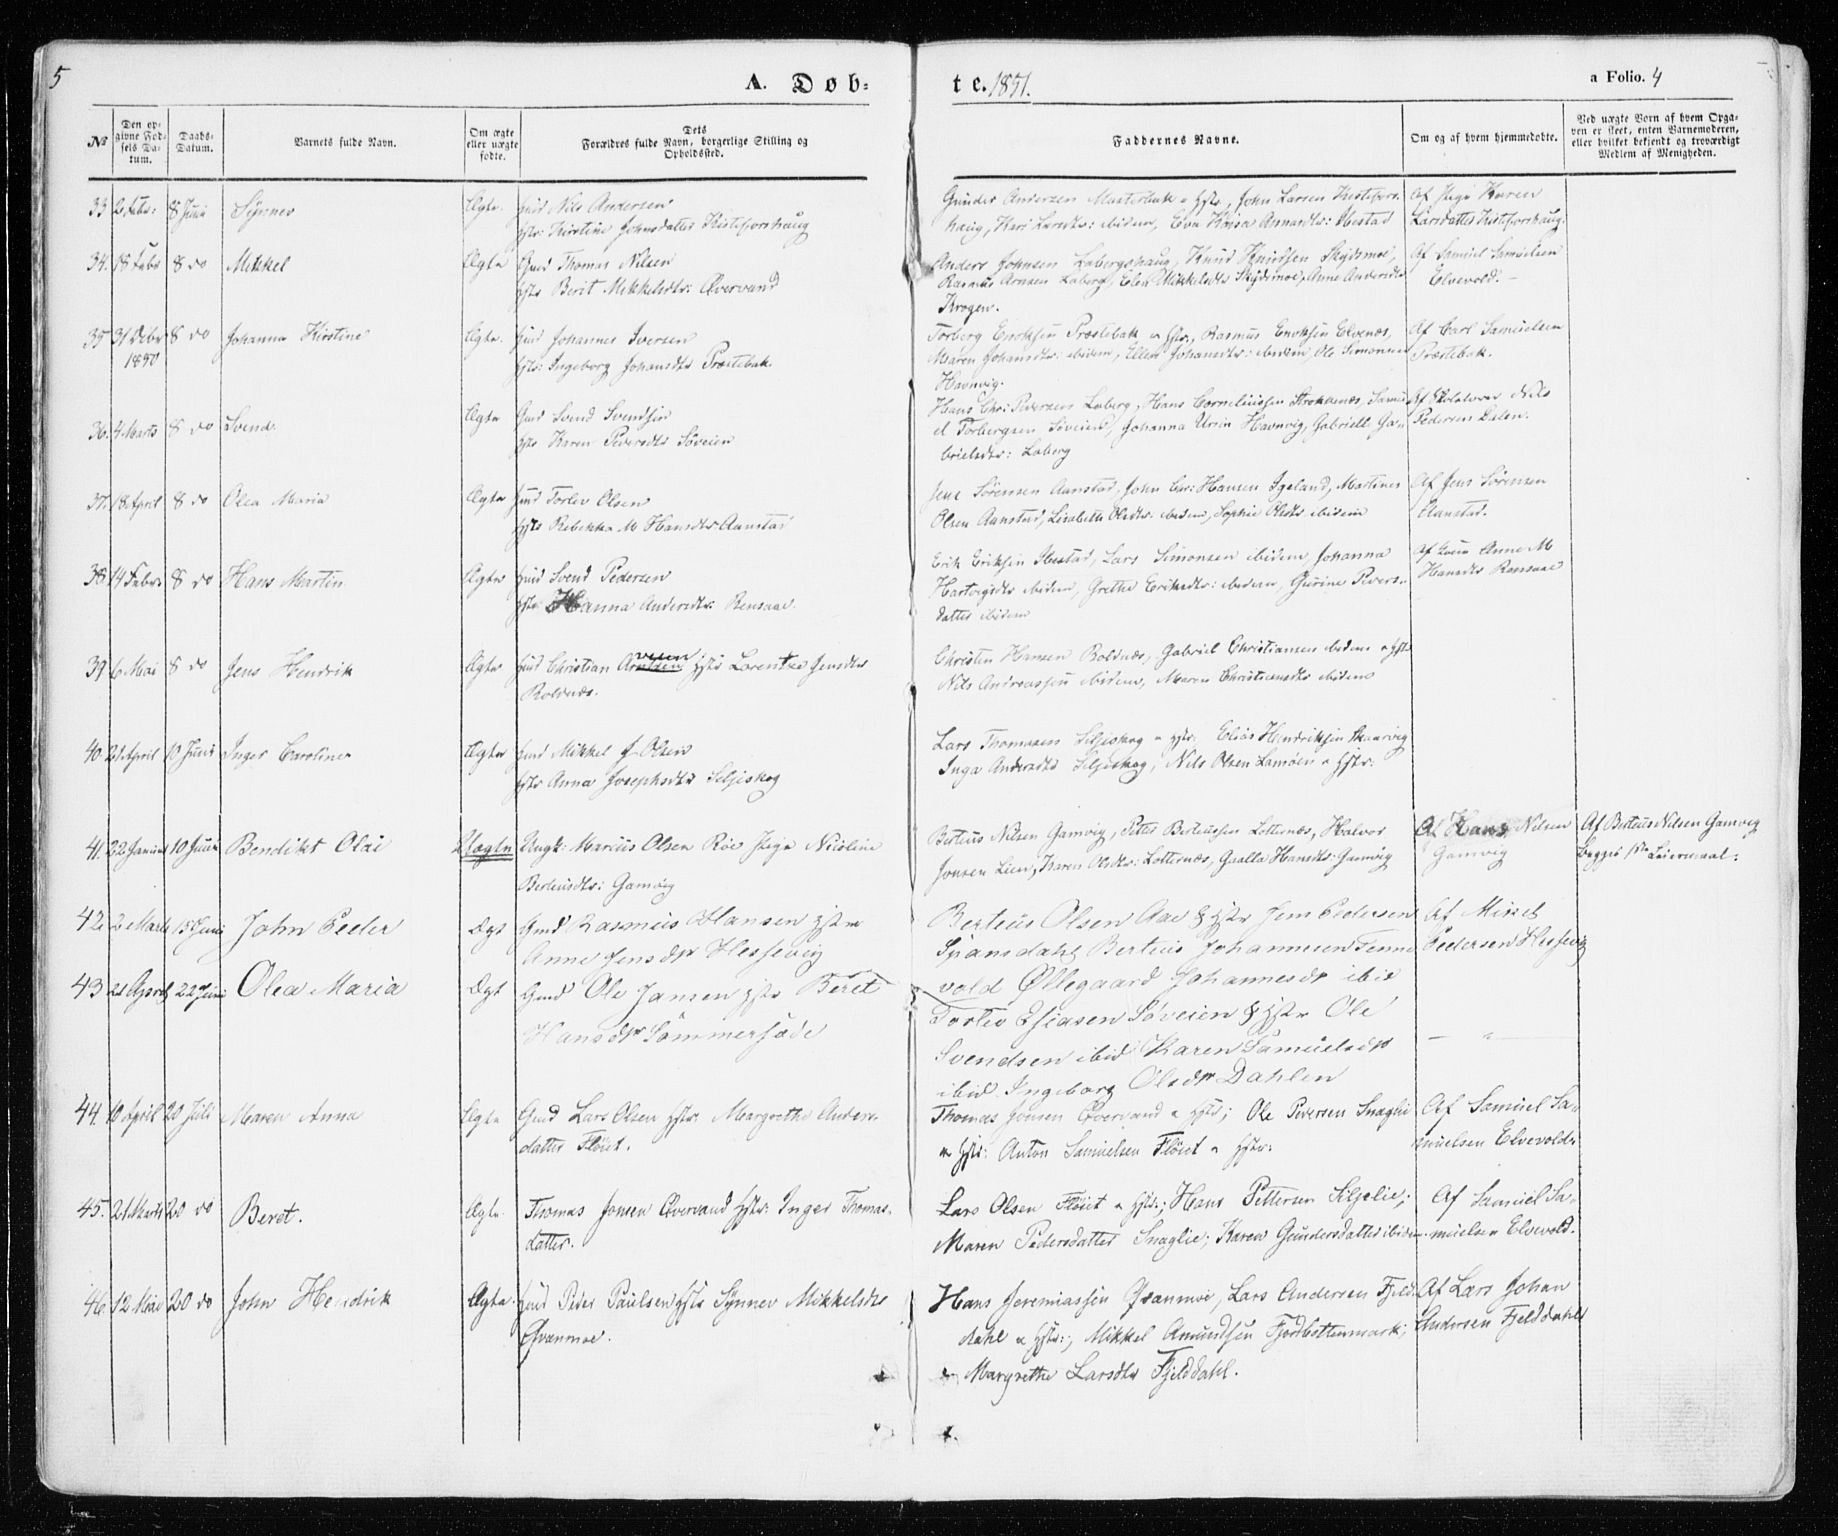 5
A. Døb-
te. 1851.
a Folio. 4
No
Den op-
givne Fød-
sels Da-
tum.
Daabs-
Datum.
Barnets fulde Navn.
Om ægte
eller uægte
fødte.
Dets
Forældres fulde Navn, borgerlige Stilling og
Opholdssted.
Faddernes Navne.
Om og af hvem hjemmedøbte.
Ved uægte Børn af hvem Opga-
ven er skeet, enten Barnemoderen,
eller hvilket bekjendt og troværdigt
Medlem af Menigheden.
33 2 Febr: 8 Juni Synnev Ægte. Gmd Nils Andersen
Hstr: Kirstine Johnsdatter Kistefosshaug
Gunder Andersen Mosterbak Hstr, John Larsen Kistefoss-
haug, Kari Larsdtr: ibidem, Eva Arnsdtr: Ibestad
Af Pige Karen
Larsdatter Kistefosshaug.
34. 18 Febr 8 do Mikkel Ægte Gmd Thomas Nilsen
Hstr Berit Mikkelsdtr: Øvervand
Anders Johnsen Labergshaug, Knud Knudsen Skydsmoe,
Rasmus Arnsen Laberg, Elen Mikkelsdtr Skydsmoe, Anne Andersdtr
Krogen.
Af Samuel Samuelsen
Elvevold. —
35 31 Debr 8 do Johanna Kirstine Ægte. Gmd Johannes Iversen
1850
Hstr: Ingeborg Johansdtr Præstebak.
Torberg Enoksen Præstebak Hstr, Rasmus Enoksen Elvenæs,
Maren Johansdtr: ibidem, Ellen Johansdtr: ibidem, Ole Simonsen
Havnvig.
Af Carl Samuelsen
Præstebak.
36. 4 Marts 8 do Svend. Ægte Gmd Svend Svendsen
Hstr Karen Pedersdtr Søveien
Hans Chr: Pedersen Laberg, Hans Corneliussen Strokkenæs, Samu-
el Torbergsen Søveien, Johanna Ursin Havnvig, Gabrielle Ga-
brielsdtr: Laberg
Af Skolelærer Nils
Pedersen Dalen.
37. 18 April 8 do Olea Maria Ægte Gmd Torlev Olsen
Hstr Rebekka M Hansdtr Aanstad
Jens Sørensen Aanstad, John Chr: Hansen Igeland, Martines
Olsen Aanstad, Lisabeth Olsdtr: ibidem, Sophie Olsdtr ibidem
Af Jens Sørensen
Aanstad.
38. 14 Febr 8 do Hans Martin Ægte Gmd Svend Pedersen
Hstr Hanna Andersdtr: Rensaae.
Erik Eriksen Ibestad, Lars Simonsen ibidem, Johanna
Hartvigsdtr ibidem, Grethe Eriksdtr: ibidem, Gurine Peders-
datter ibidem
Af Anne M
Hansdtr Rensaae
39 6 Mai 8 do Jens Hendrik Ægte Gmd Christian Hstr Lorentze Jensdtr
Roldnæs.
Christen Hansen Roldnæs, Gabriel Christiansen ibidem Hstr
Nils Andreassen ibidem, Maren Christiansdtr ibidem
40. 21 April 10 Juni Inger Caroline Ægte Gmd Mikkel J. Olsen
Hstr Anna Josephsdtr Siljeskog
Lars Thomasen Siljeskog Hstr; Elias Hendriksen Skaarvig
Inga Andersdtr Siljeskog, Nils Olsen Lamøen Hstr:
41. 22 Januar 10 Juni Bendikt Olai Uægte Ungk: Marius Olsen Røe Pige Nicoline
Berteusdtr: Gamvig
Berteus Nilsen Gamvig, Petter Berteussen Lotternæs, Halvor
Jonsen Lien, Karen Olsdtr: Lotternæs, Hansdtr: Gamvig
Af Hans Nilsen
Gamvig
Af Berteus Nilsen Gamvig
begges 1ste Leiermaal:
42. 2 Marts 15 Juni John Peder Ægt Gmd Rasmus Hansen Hstr
Anne Jensdtr Hessevig
Berteus Olsen Aae & Hstr Jens Pedersen
Spansdahl Berteus Johannesen Tenne-
vold Øllegaard Johannesdtr ibid
Af Mikkel
Pedersen Hessevig
43 21 April 22 Juni Olea Maria Ægt Gmd Ole Jansen Hstr Beret
Hansdtr Sommersæde
Torlev Esiasen Søveien & Hstr Ole
Svendsen ibid Karen Samuelsdtr
ibid Ingeborg Olsdtr Dahlen
— " —
44. 10 April 20 Juli Maren Anna Ægte Gmd Lars Olsen Hstr: Margrethe Anders-
datter Fløiet.
Thomas Jonsen Øvervand Hstr; Ole Pedersen Snaglie
Hstr: Anton Samuelsen Fløiet Hstr:
Af Samuel Sa-
muelsen Elvevold.
45. 21 Marts 20 do Beret. Ægte. Thomas Jonsen Øvervand Hstr: Inger Thomas-
datter.
Lars Olsen Fløiet Hstr:; Hans Pettersen Siljelie;
Maren Pedersdatter Snaglie; Karen Gundersdatter ibidem.
Af Samuel Sa-
muelsen Elvevold.
46. 12 Mai 20 do John Hendrik Ægte. Gmd Peder Paulsen Hstr Synnev Mikkelsdtr
Qvanmoe.
Hans Jeremiassen Qvanmoe, Lars Andersen Fjeld-
dahl Hstr:; Mikkel Amundsen Fjordbottenmark;
Margrethe Larsdtr Fjelddahl.
Af Lars Johan
Andersen Fjelddahl